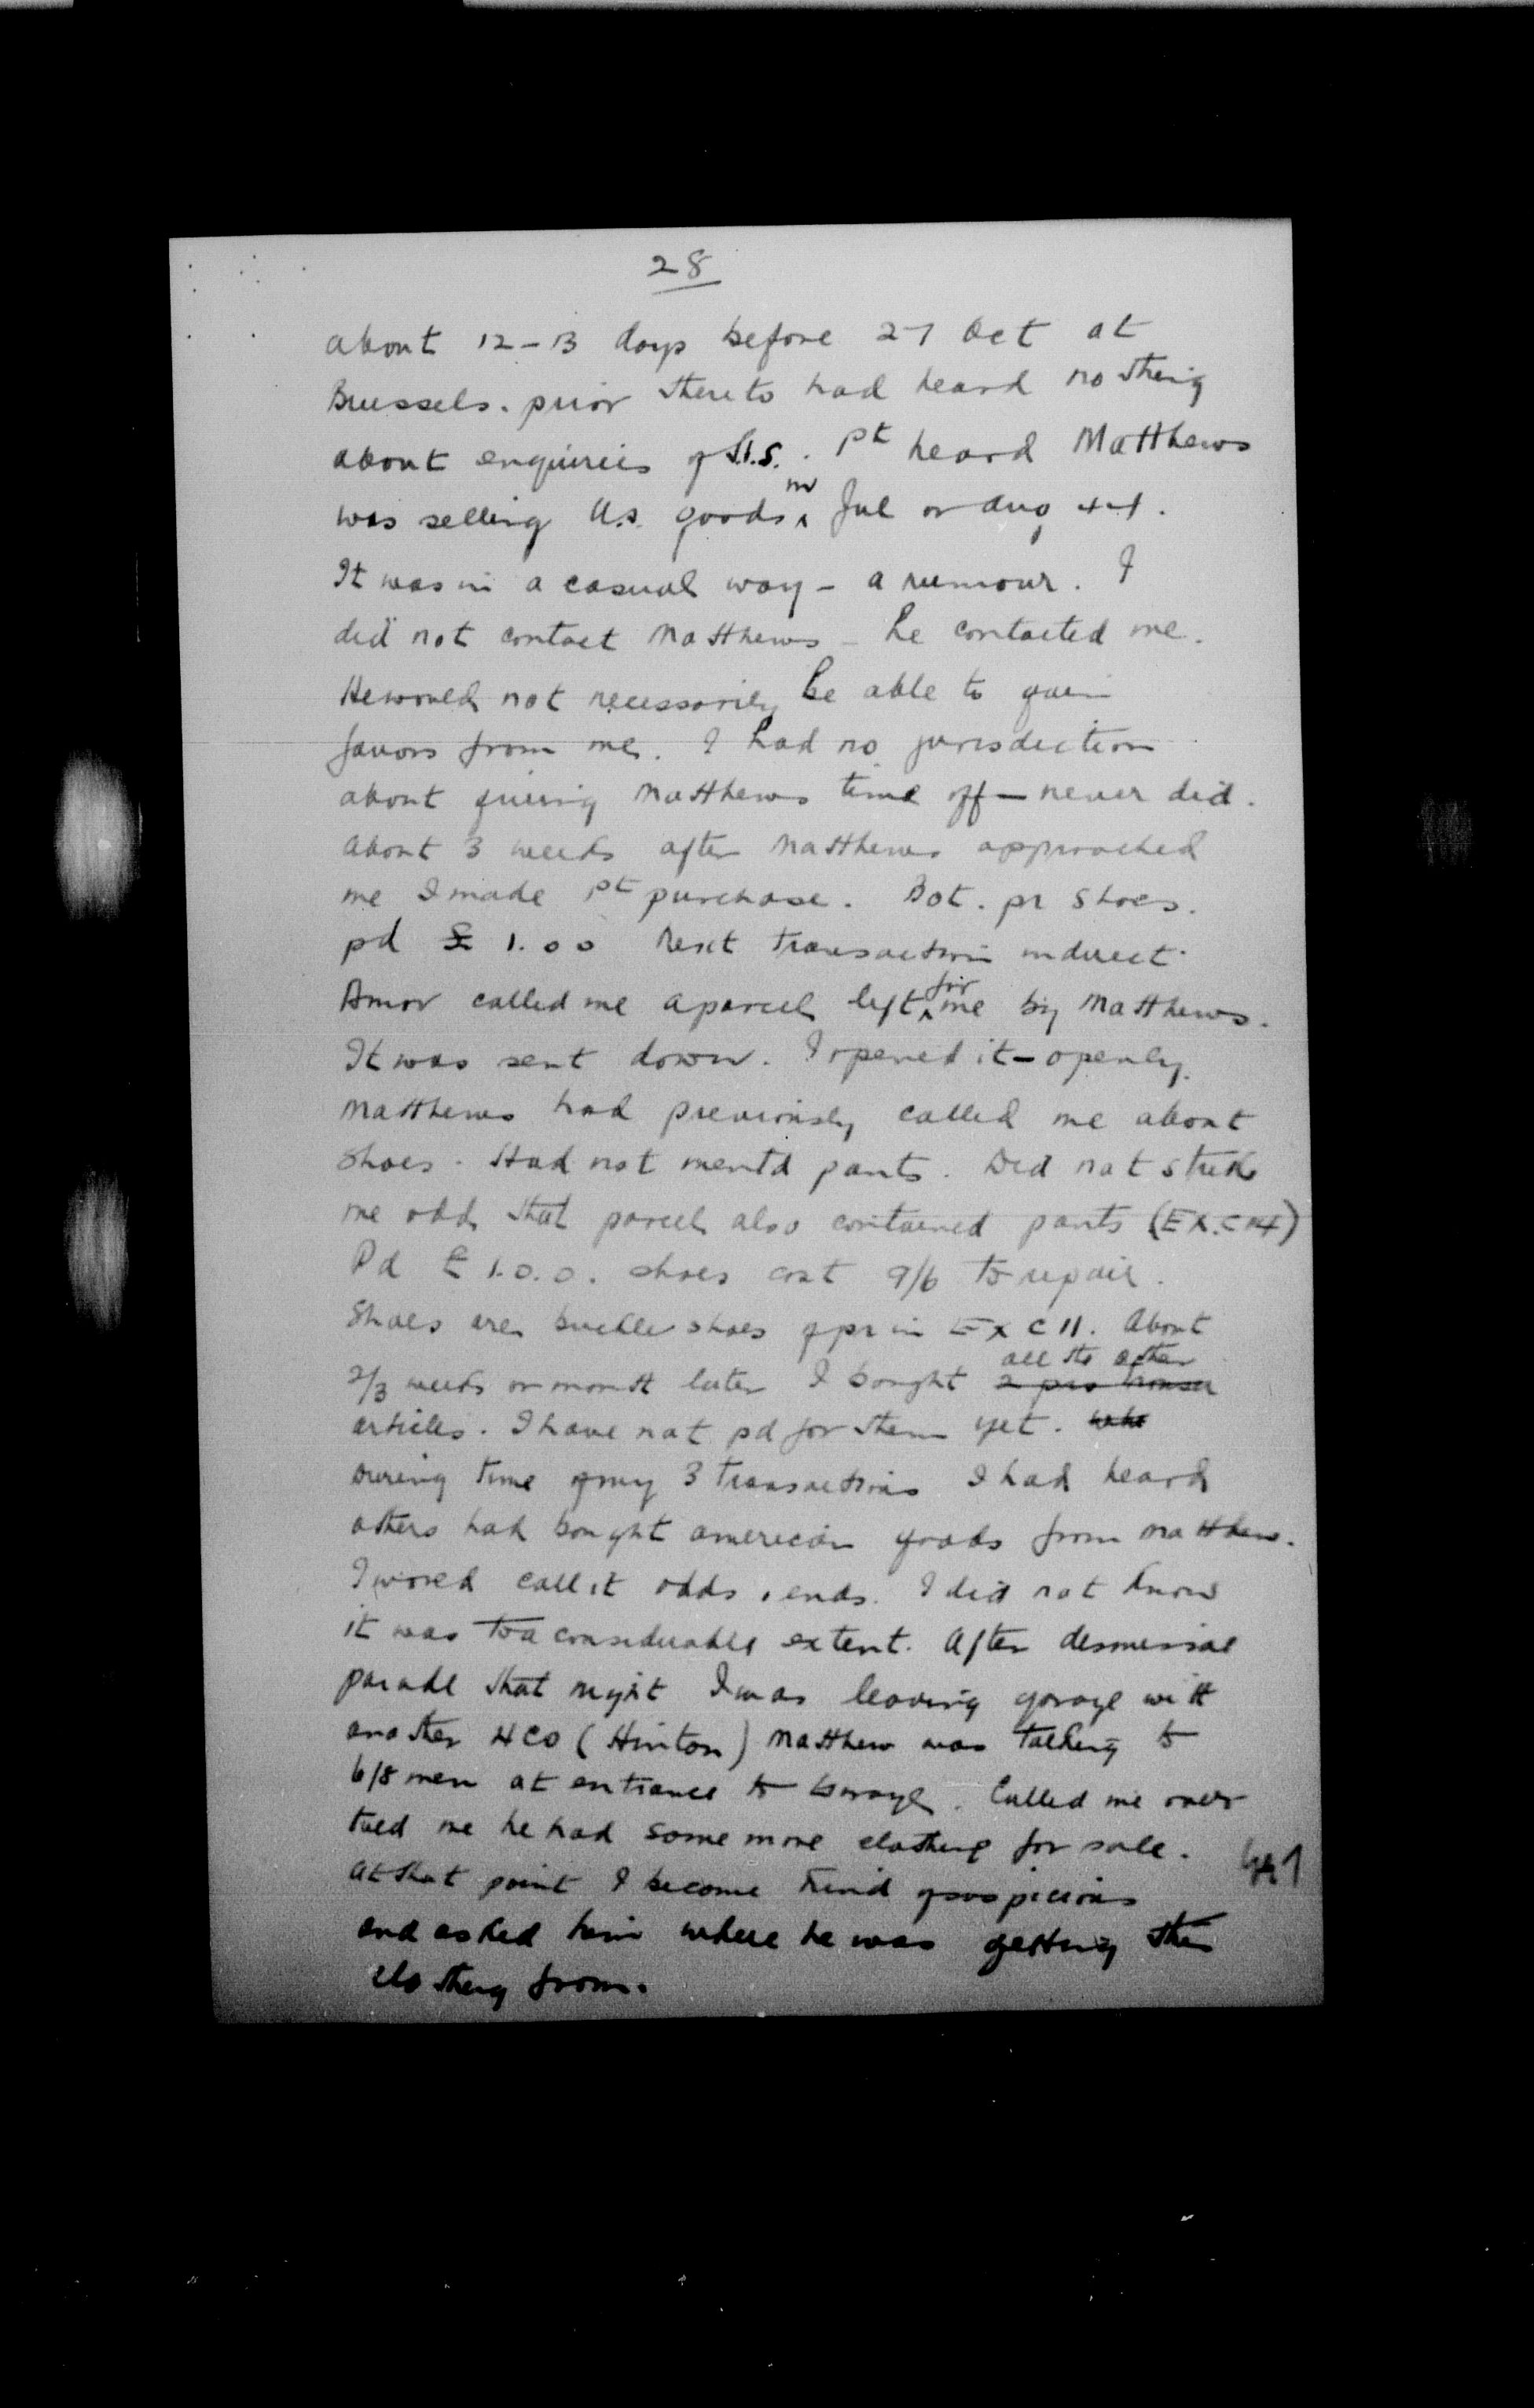 28
about 12-13 days before 27 Oct at
Brussels. prior thereto had heard nothing
about enquiries of S.I.S. 1st heard Matthews
was selling U.S. goods in Jul or Aug 44.
It was in a casual way - a rumour. I
did not contact Matthews - he contacted me.
He would not necessarily be able to gain
favors from me. I had no jurisdiction
about giving Matthews time off - never did.
About 3 weeks after Matthews approached
me I made 1st purchase. Bot. pr shoes.
pd £ 1.00 Next transaction indirect.
Amor called me a parcel left for me by Matthews.
It was sent down. I opened it - openly.
Matthews had previously called me about
shoes. Had not mentd pants. Did not strike
me odd that parcel also contained pants (EX. C 14)
Pd £ 1.0.0. shoes cost 9/6 to repair.
Shoes are buckle shoes of pr in Ex C 11. About
2/3 weeks or month later I bought all the other
articles. I have not pd for them yet.
During time of my 3 transactions I had heard
others had bought american goods from Matthews.
I would call it odds & ends. I did not know
it was to a considerable extent. After dismissal
parade that night I was leaving garage with
another NCO (Hinton) Matthew was talking to
6/8 men at entrance to garage. Called me over
told me he had some more clothing for sale.
At that point I become kind of suspicious
and asked him where he was getting the
clothing from.